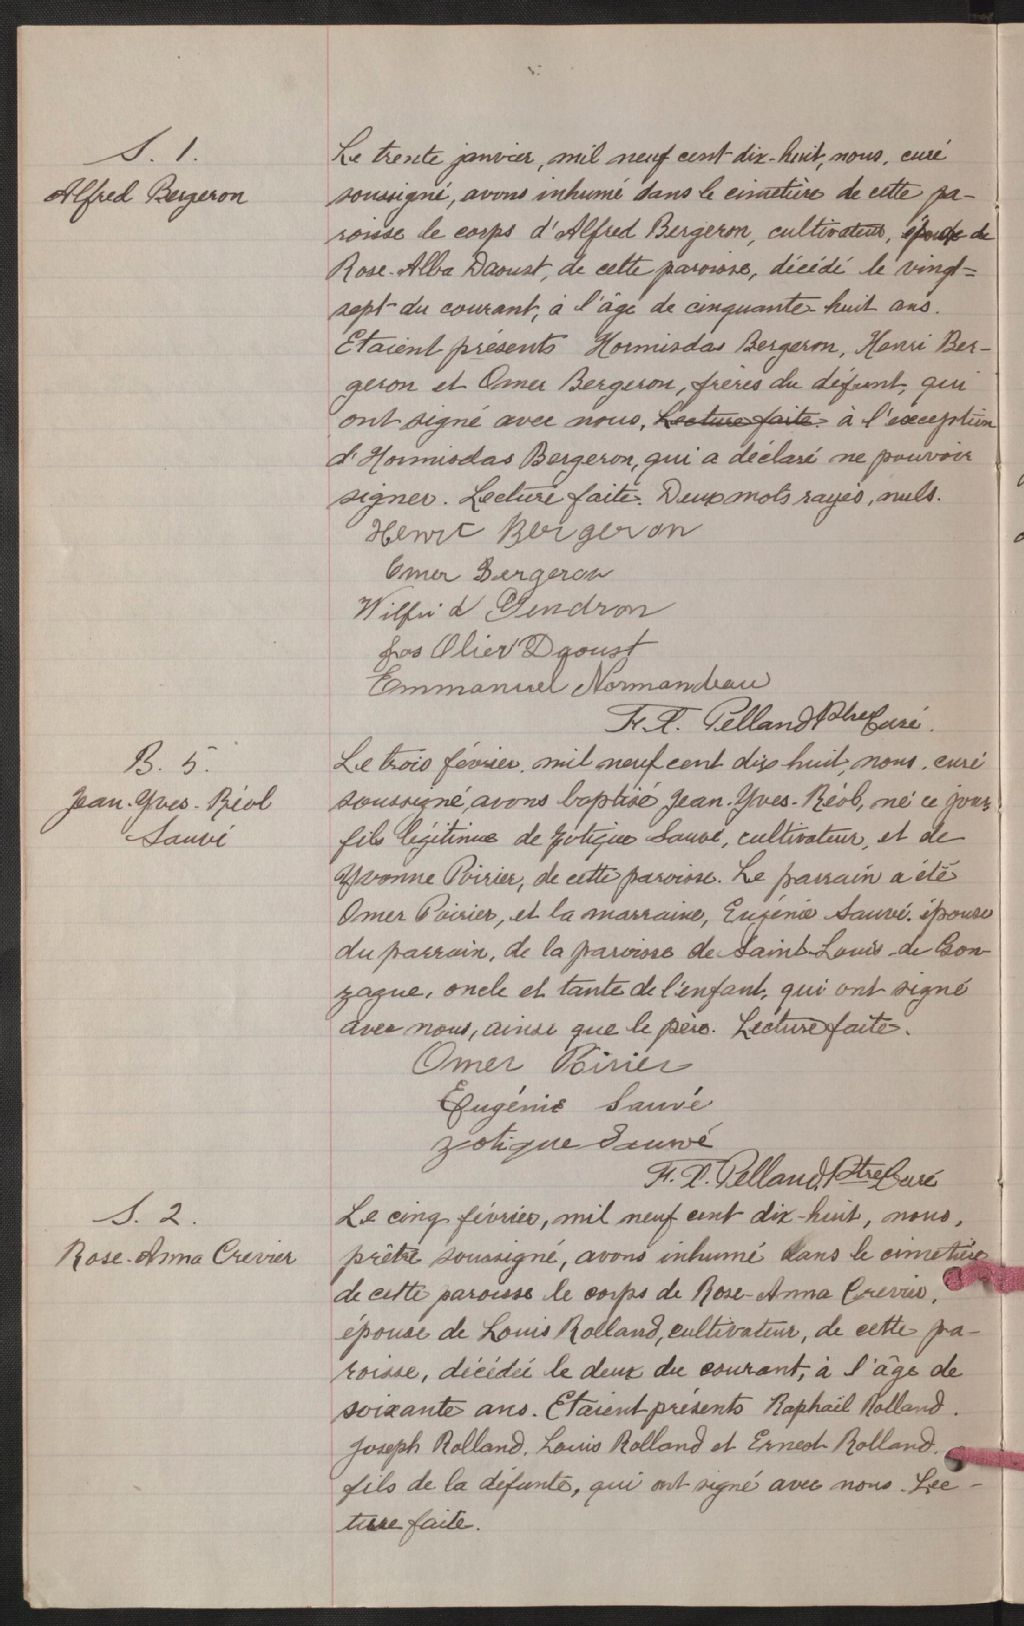 S. 1.
Alfred Bergeron
Le trente janvier, mil neuf cent dix-huit, nous, curé
soussigné, avons inhumé dans le cimetière de cette pa-
roisse le corps d'Alfred Bergeron, cultivateur, époux de
Rose-Alba Daoust, de cette paroisse, décédé le vingt=
sept du courant, à l'âge de cinquante huit ans.
Etaient présents Hormisdas Bergeron, Henri Ber-
geron et Omer Bergeron, frères du défunt, qui
ont signé avec nous, Lecture faite. à l'exception
d'Hormisdas Bergeron, qui a déclaré ne pouvoir
signer. Lecture faite. Deux mots rayés, nuls.
Henri Bergeron
Omer Bergeron
Wilfrid Gendron
Jos Olier Daoust
Emmanuel Normandeau
F. X. Pelland Ptre Curé.
B. 5.
Jean-Yves-Réol
Sauvé
Le trois février, mil neuf cent dix huit, nous, curé
soussigné, avons baptisé Jean-Yves-Réol, né ce jour,
fils légitime de Zotique Sauvé, cultivateur, et de
Yvonne Poirier, de cette paroisse. Le parrain a été
Omer Poirier, et la marraine, Eugénie Sauvé, épouse
du parrain, de la paroisse de Saint-Louis-de Gon-
zague, oncle et tante de l'enfant, qui ont signé
avec nous, ainsi que le père. Lecture faite.
Omer Poirier
Eugénie Sauvé
Zotique Sauvé
F. X. Pelland, Ptre Curé
S. 2.
Rose-Anna Crevier
Le cinq février, mil neuf cent dix-huit, nous,
prêtre soussigné, avons inhumé dans le cimetière
de cette paroisse le corps de Rose-Anna Crevier,
épouse de Louis Rolland, cultivateur, de cette pa-
roisse, décédée le deux du courant, à l'âge de
soixante ans. Etaient présents Raphaël Rolland,
Joseph Rolland, Louis Rolland et Ernest Rolland,
fils de la défunte, qui ont signé avec nous. Lec-
ture faite.